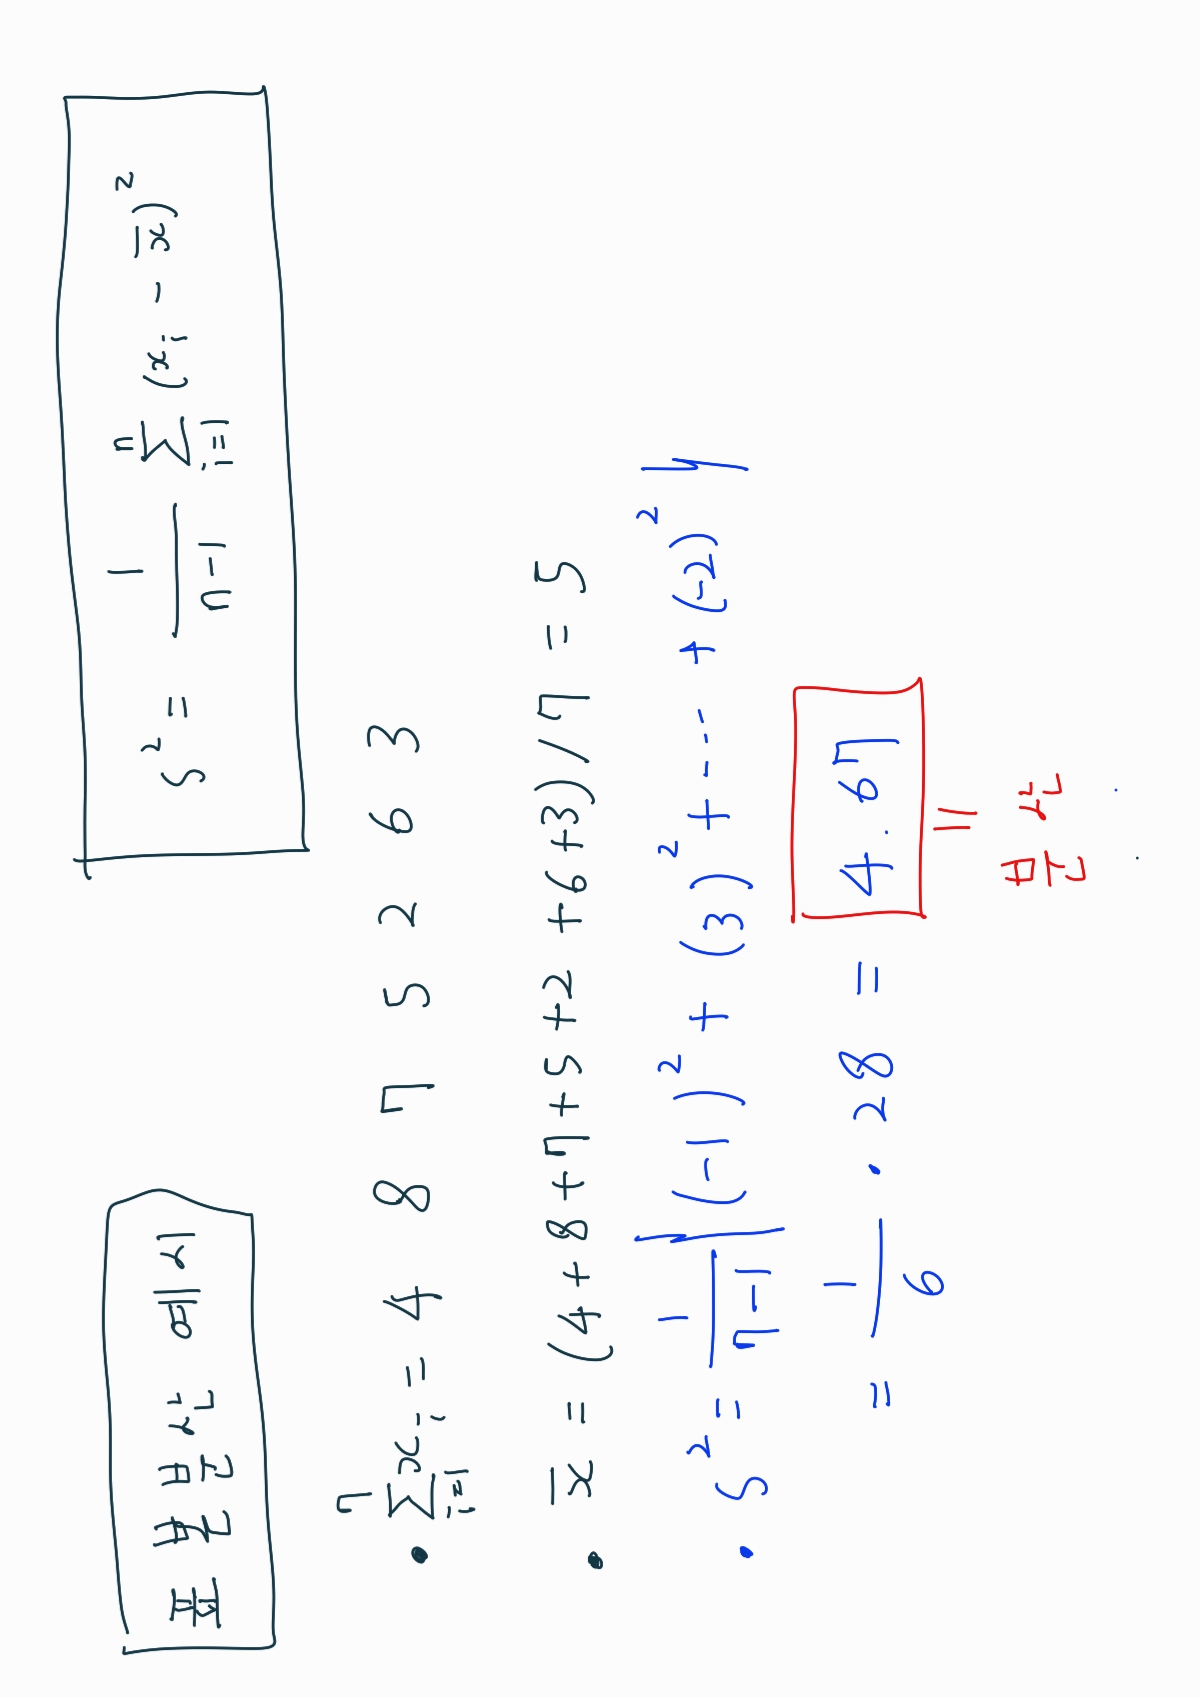 표본분산 예제
s² = 1/(n-1) Σ_{i=1}^{n} (x_i - x̄)²
• Σ_{i=1}^{7} x_i = 4 8 7 5 2 6 3
• x̄ = (4+8+7+5+2+6+3)/7 = 5
• s² = 1/(7-1) { (-1)² + (3)² + ---- + (-2)² }
= 1/6 · 28 = 4.67
=
분산